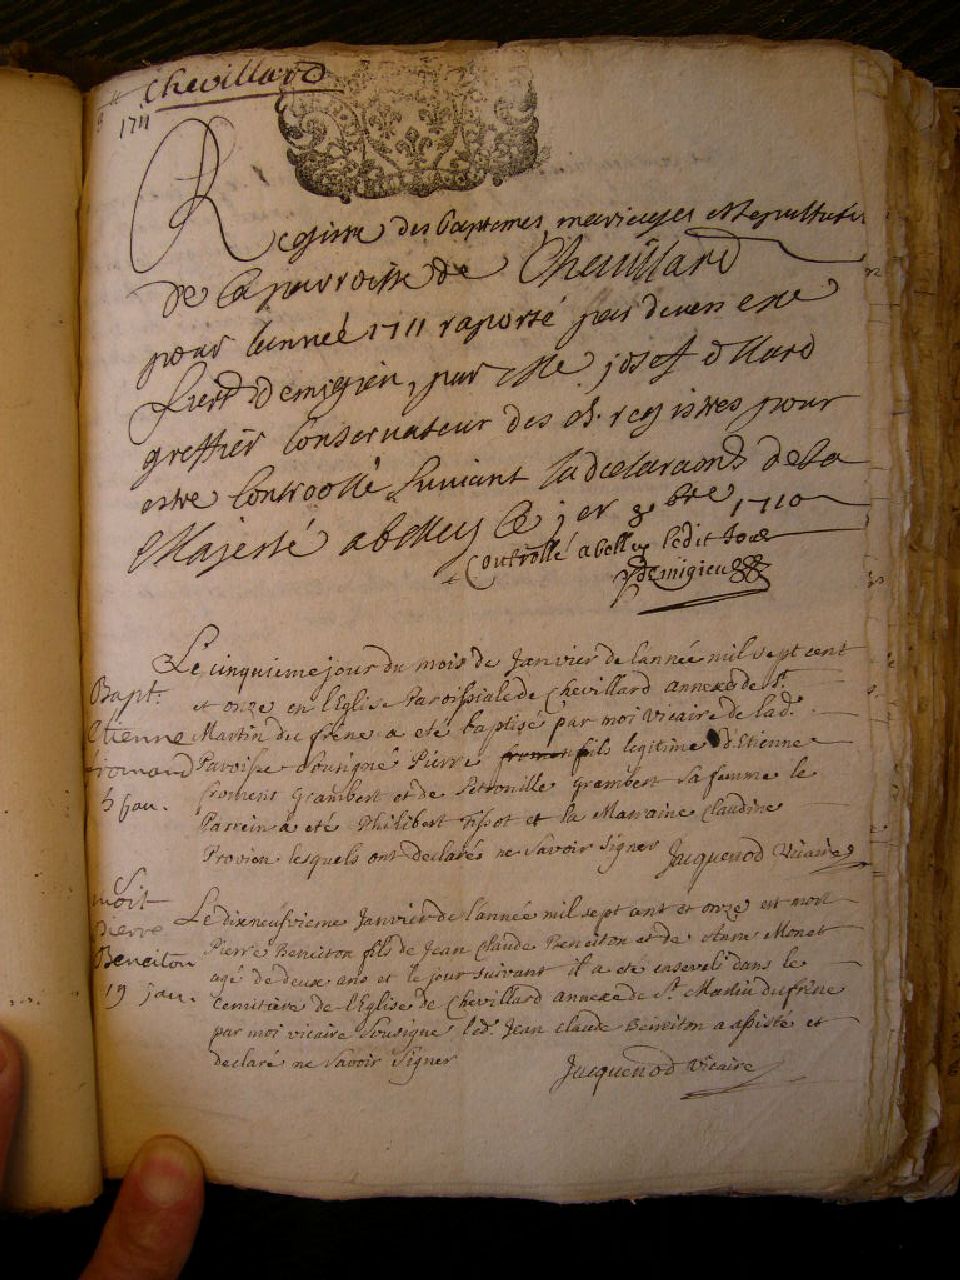 Chevillard
1711
Registre des baptemes, mariages et sepultures
de la parroisse de Chevillard
pour lannee 1711 raporté par devan
demigieu, par Me josef
greffier Conservateur des registres pour
estre Controollé Suivant la declaraon de Sa
Majesté a belley Ce jer bre 1710
Controllé a belley ledit Jour
Demigieu
Le cinquieme jour du mois de Janvier de lannée mil sept cent
Bapt.
et onze en l'Eglise Paroissiale de Chevillard annexe de St.
Etienne
Martin du frêne a eté baptisé par moi Vicaire de lad.
Paroisse sousigné Pierre fils legitime d'Etienne
5 Janv.
froment grambert et de Petronille grembert sa femme le
Parrein a eté Philibert Tissot et la Marraine Claudine
lesquels ont declaré ne savoir signer Jacquenod Vicaire
mort
Le dixneufvieme Janvier de l'année mil sept cent et onze est mort
Pierre
Pierre Beneiton fils de Jean Claude Beneiton et de Anne Monet
Beneiton
agé de deux ans et le jour suivant il a eté enseveli dans le
19 jan.
Cemitière de l'Eglise de Chevillard annexe de St Martin du frêne
par moi vicaire sousigné led. Jean Claude Beneiton a assisté et
declaré ne savoir signer
Jacquenod Vicaire